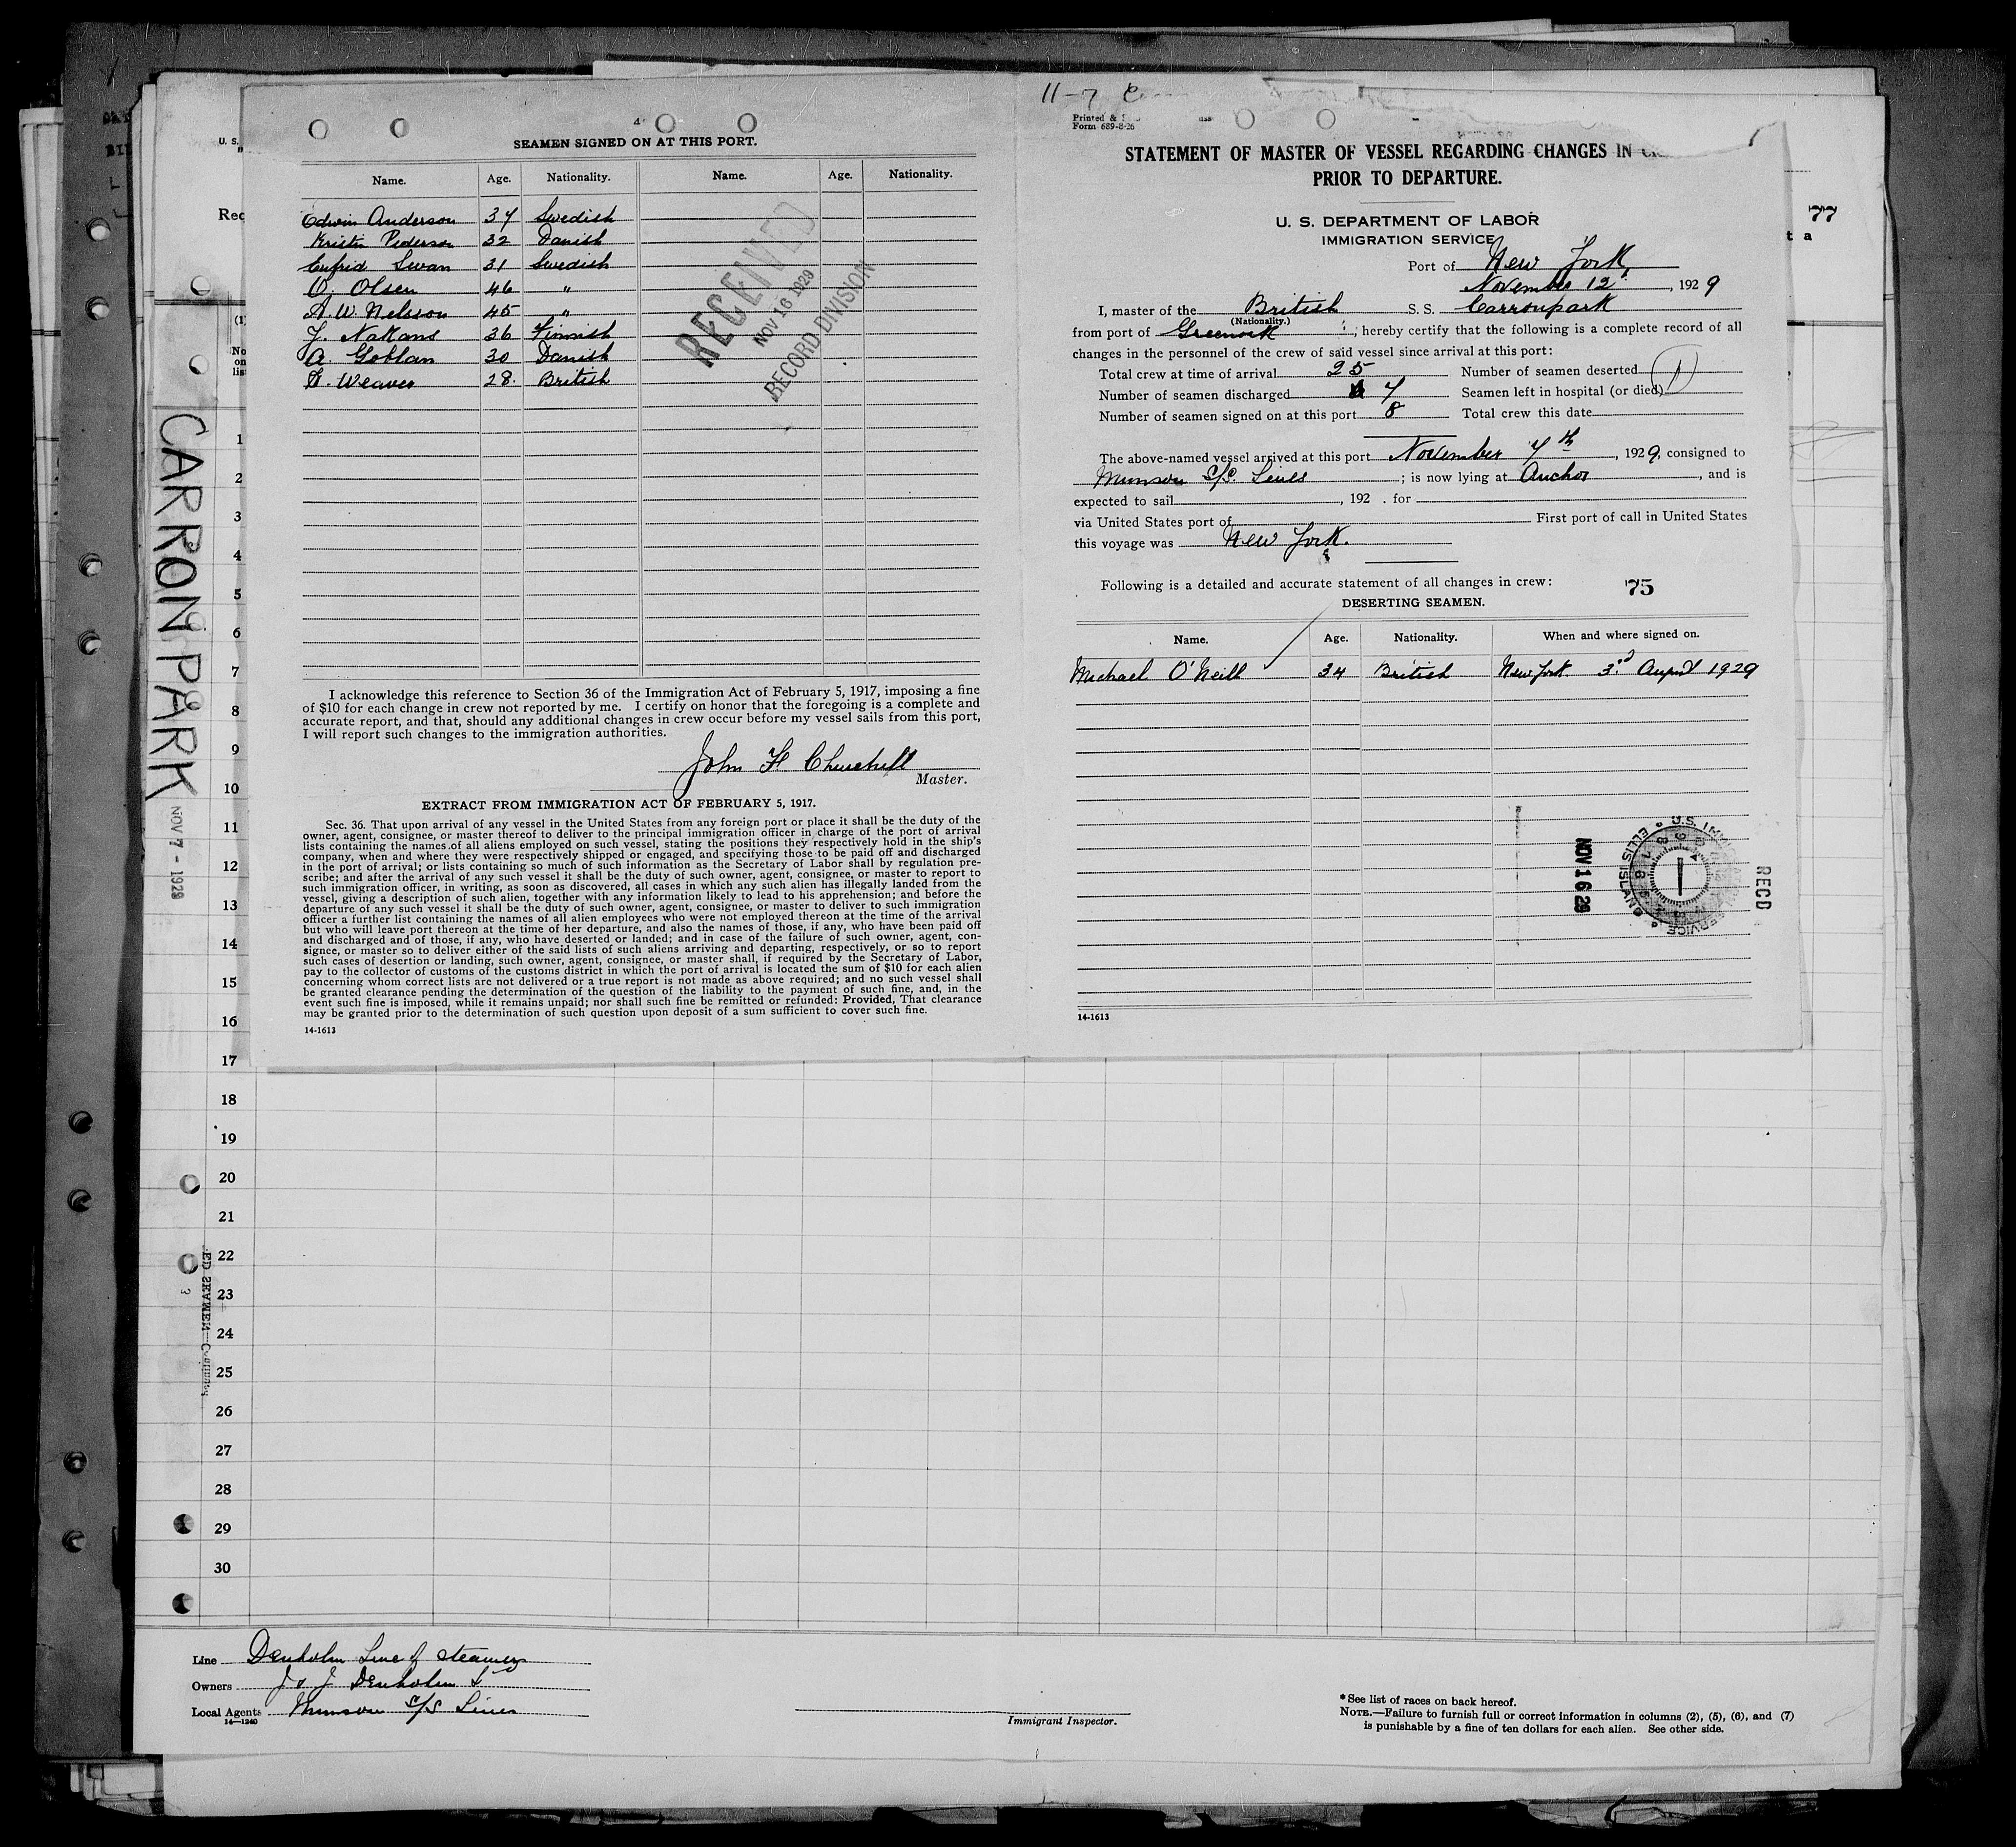 SEAMEN SIGNED ON AT THIS PORT.
Name. Age. Nationality. Name. Age. Nationality.
Edwin Anderson 34 Swedish
Kristin Pederson 32 Danish
Swan 31 Swedish
O. Olsen 46 "
A. W. Nelsson 45 "
36 Finnish
A. Goblan 30 Danish
Weaver 28. British
RECEIVED
NOV 16 1929
RECORD DIVISION
I acknowledge this reference to Section 36 of the Immigration Act of February 5, 1917, imposing a fine
of $10 for each change in crew not reported by me. I certify on honor that the foregoing is a complete and
accurate report, and that, should any additional changes in crew occur before my vessel sails from this port,
I will report such changes to the immigration authorities.
John F Churchill
Master.
EXTRACT FROM IMMIGRATION ACT OF FEBRUARY 5, 1917.
Sec. 36. That upon arrival of any vessel in the United States from any foreign port or place it shall be the duty of the
owner, agent, consignee, or master thereof to deliver to the principal immigration officer in charge of the port of arrival
lists containing the names of all aliens employed on such vessel, stating the positions they respectively hold in the ship's
company, when and where they were respectively shipped or engaged, and specifying those to be paid off and discharged
in the port of arrival; or lists containing so much of such information as the Secretary of Labor shall by regulation pre-
scribe; and after the arrival of any such vessel it shall be the duty of such owner, agent, consignee, or master to report to
such immigration officer, in writing, as soon as discovered, all cases in which any such alien has illegally landed from the
vessel, giving a description of such alien, together with any information likely to lead to his apprehension; and before the
departure of any such vessel it shall be the duty of such owner, agent, consignee, or master to deliver to such immigration
officer a further list containing the names of all alien employees who were not employed thereon at the time of the arrival
but who will leave port thereon at the time of her departure, and also the names of those, if any, who have been paid off
and discharged and of those, if any, who have deserted or landed; and in case of the failure of such owner, agent, con-
signee, or master so to deliver either of the said lists of such aliens arriving and departing, respectively, or so to report
such cases of desertion or landing, such owner, agent, consignee, or master shall, if required by the Secretary of Labor,
pay to the collector of customs of the customs district in which the port of arrival is located the sum of $10 for each alien
concerning whom correct lists are not delivered or a true report is not made as above required; and no such vessel shall
be granted clearance pending the determination of the question of the liability to the payment of such fine, and, in the
event such fine is imposed, while it remains unpaid; nor shall such fine be remitted or refunded: Provided, That clearance
may be granted prior to the determination of such question upon deposit of a sum sufficient to cover such fine.
14-1613
11-7
Printed &
Form 689-8-26
STATEMENT OF MASTER OF VESSEL REGARDING CHANGES IN
PRIOR TO DEPARTURE.
U. S. DEPARTMENT OF LABOR
IMMIGRATION SERVICE
Port of New York
November 12, 1929
I, master of the British S. S. Carronpark
(Nationality.)
from port of Greenock; hereby certify that the following is a complete record of all
changes in the personnel of the crew of said vessel since arrival at this port:
Total crew at time of arrival 25 Number of seamen deserted 1
Number of seamen discharged 7 Seamen left in hospital (or died)
Number of seamen signed on at this port 8 Total crew this date
The above-named vessel arrived at this port November 7th, 1929, consigned to
Munson S/S. Lines; is now lying at Anchor, and is
expected to sail, 192 . for
via United States port of First port of call in United States
this voyage was New York.
Following is a detailed and accurate statement of all changes in crew:
75
DESERTING SEAMEN.
Name. Age. Nationality. When and where signed on.
Michael O'Neill 34 British New York. 3rd August 1929
RECD
U.S. IMMIGRATION SERVICE ELLIS ISLAND
NOV 16 29
14-1613
77
CARRONPARK
NOV 7 - 1929
U. S.
Rec
(1)
No
on
lis
t a
1
2
3
4
5
6
7
8
9
10
11
12
13
14
15
16
17
18
19
20
21
22
23
24
25
26
27
28
29
30
ED SEAMEN—Continued
3
Line Denholm Line of Steamers
Owners J & J Denholm Ld
Local Agents Munson S/S Lines
14—1240
Immigrant Inspector.
*See list of races on back hereof.
NOTE.—Failure to furnish full or correct information in columns (2), (5), (6), and (7)
is punishable by a fine of ten dollars for each alien. See other side.